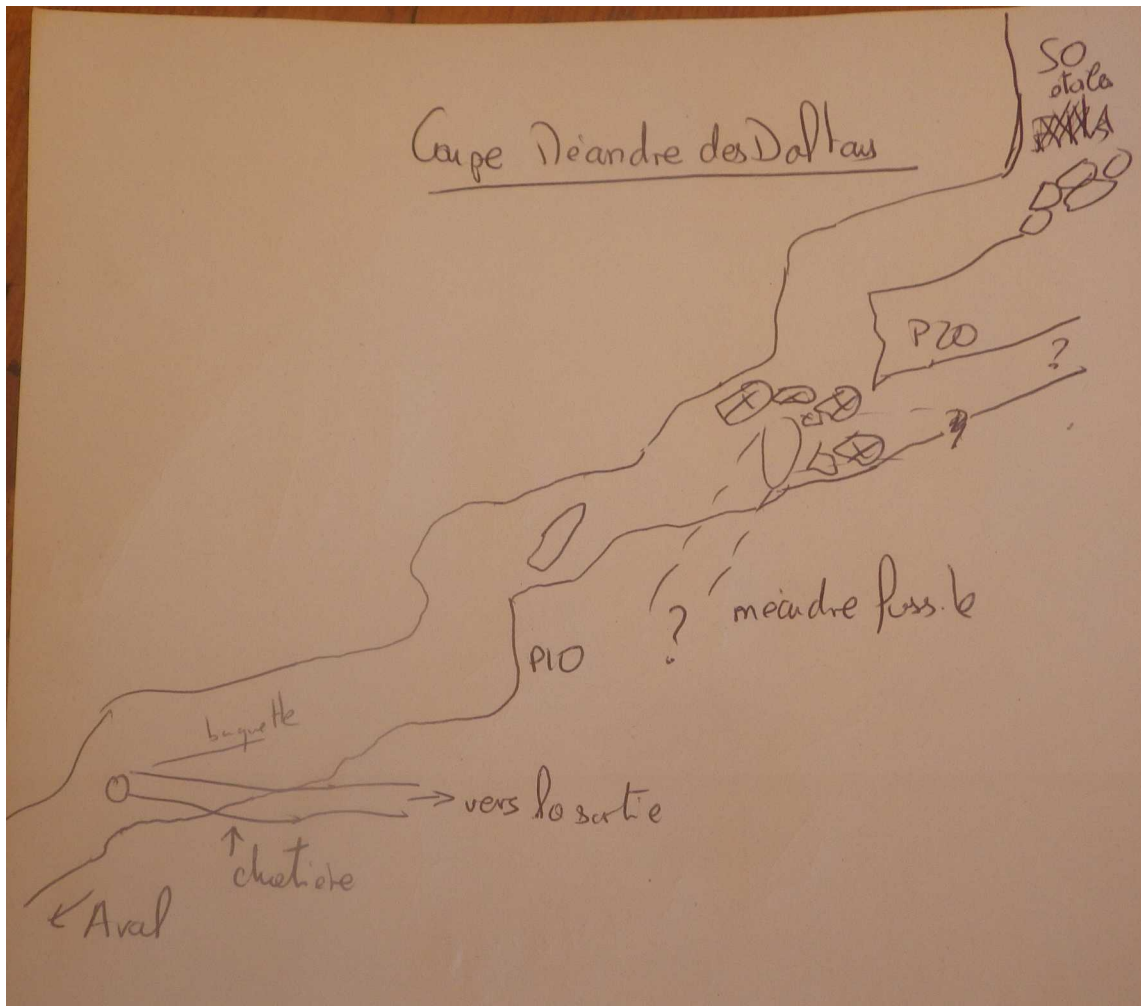 SO
Coupe Méandre des Daltons
P20
?
méandre possible
?
P10
baguette
vers la sortie
chatière
Aval